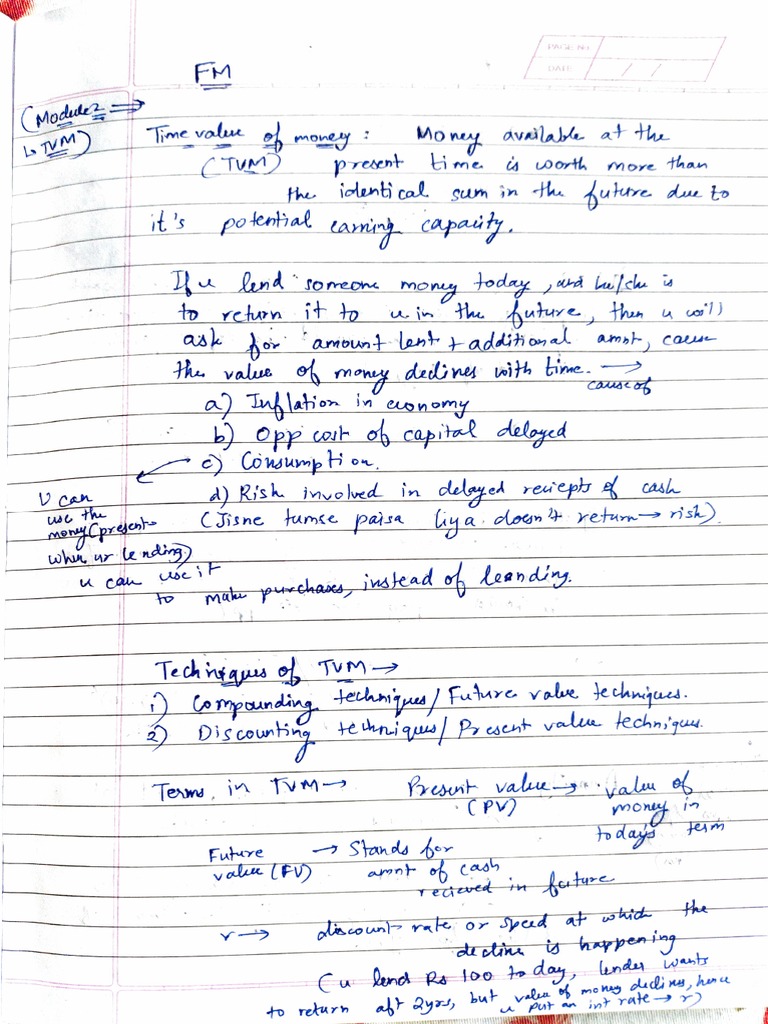 PAGE No.
DATE / /
FM
(Module 2 ⇒
↳ TVM)
Time value of money : Money available at the
(TVM) present time is worth more than
the identical sum in the future due to
it's potential earning capacity.
If u lend someone money today, and he/she is
to return it to u in the future, then u will
ask for amount lent + additional amnt, cause
the value of money declines with time. →
cause of
a) Inflation in economy
b) Opp cost of capital delayed
c) Consumption.
d) Risk involved in delayed reciepts of cash
(Jisne tumse paisa liya doesn't return → risk)
U can
use the
money (present
when ur lending)
u can use it
to make purchases, instead of leanding.
Techniques of TVM →
1) Compounding techniques/ Future value techniques.
2) Discounting techniques/ Present value techniques.
Terms in TVM → Present value → value of
(PV) money in
today's term
Future → Stands for
value (FV) amnt of cash
recieved in future
r → discount rate or speed at which the
decline is happening
(u lend Rs 100 today, lender wants
to return aft 2yrs, but value of money declines, hence
u put an int rate → r)